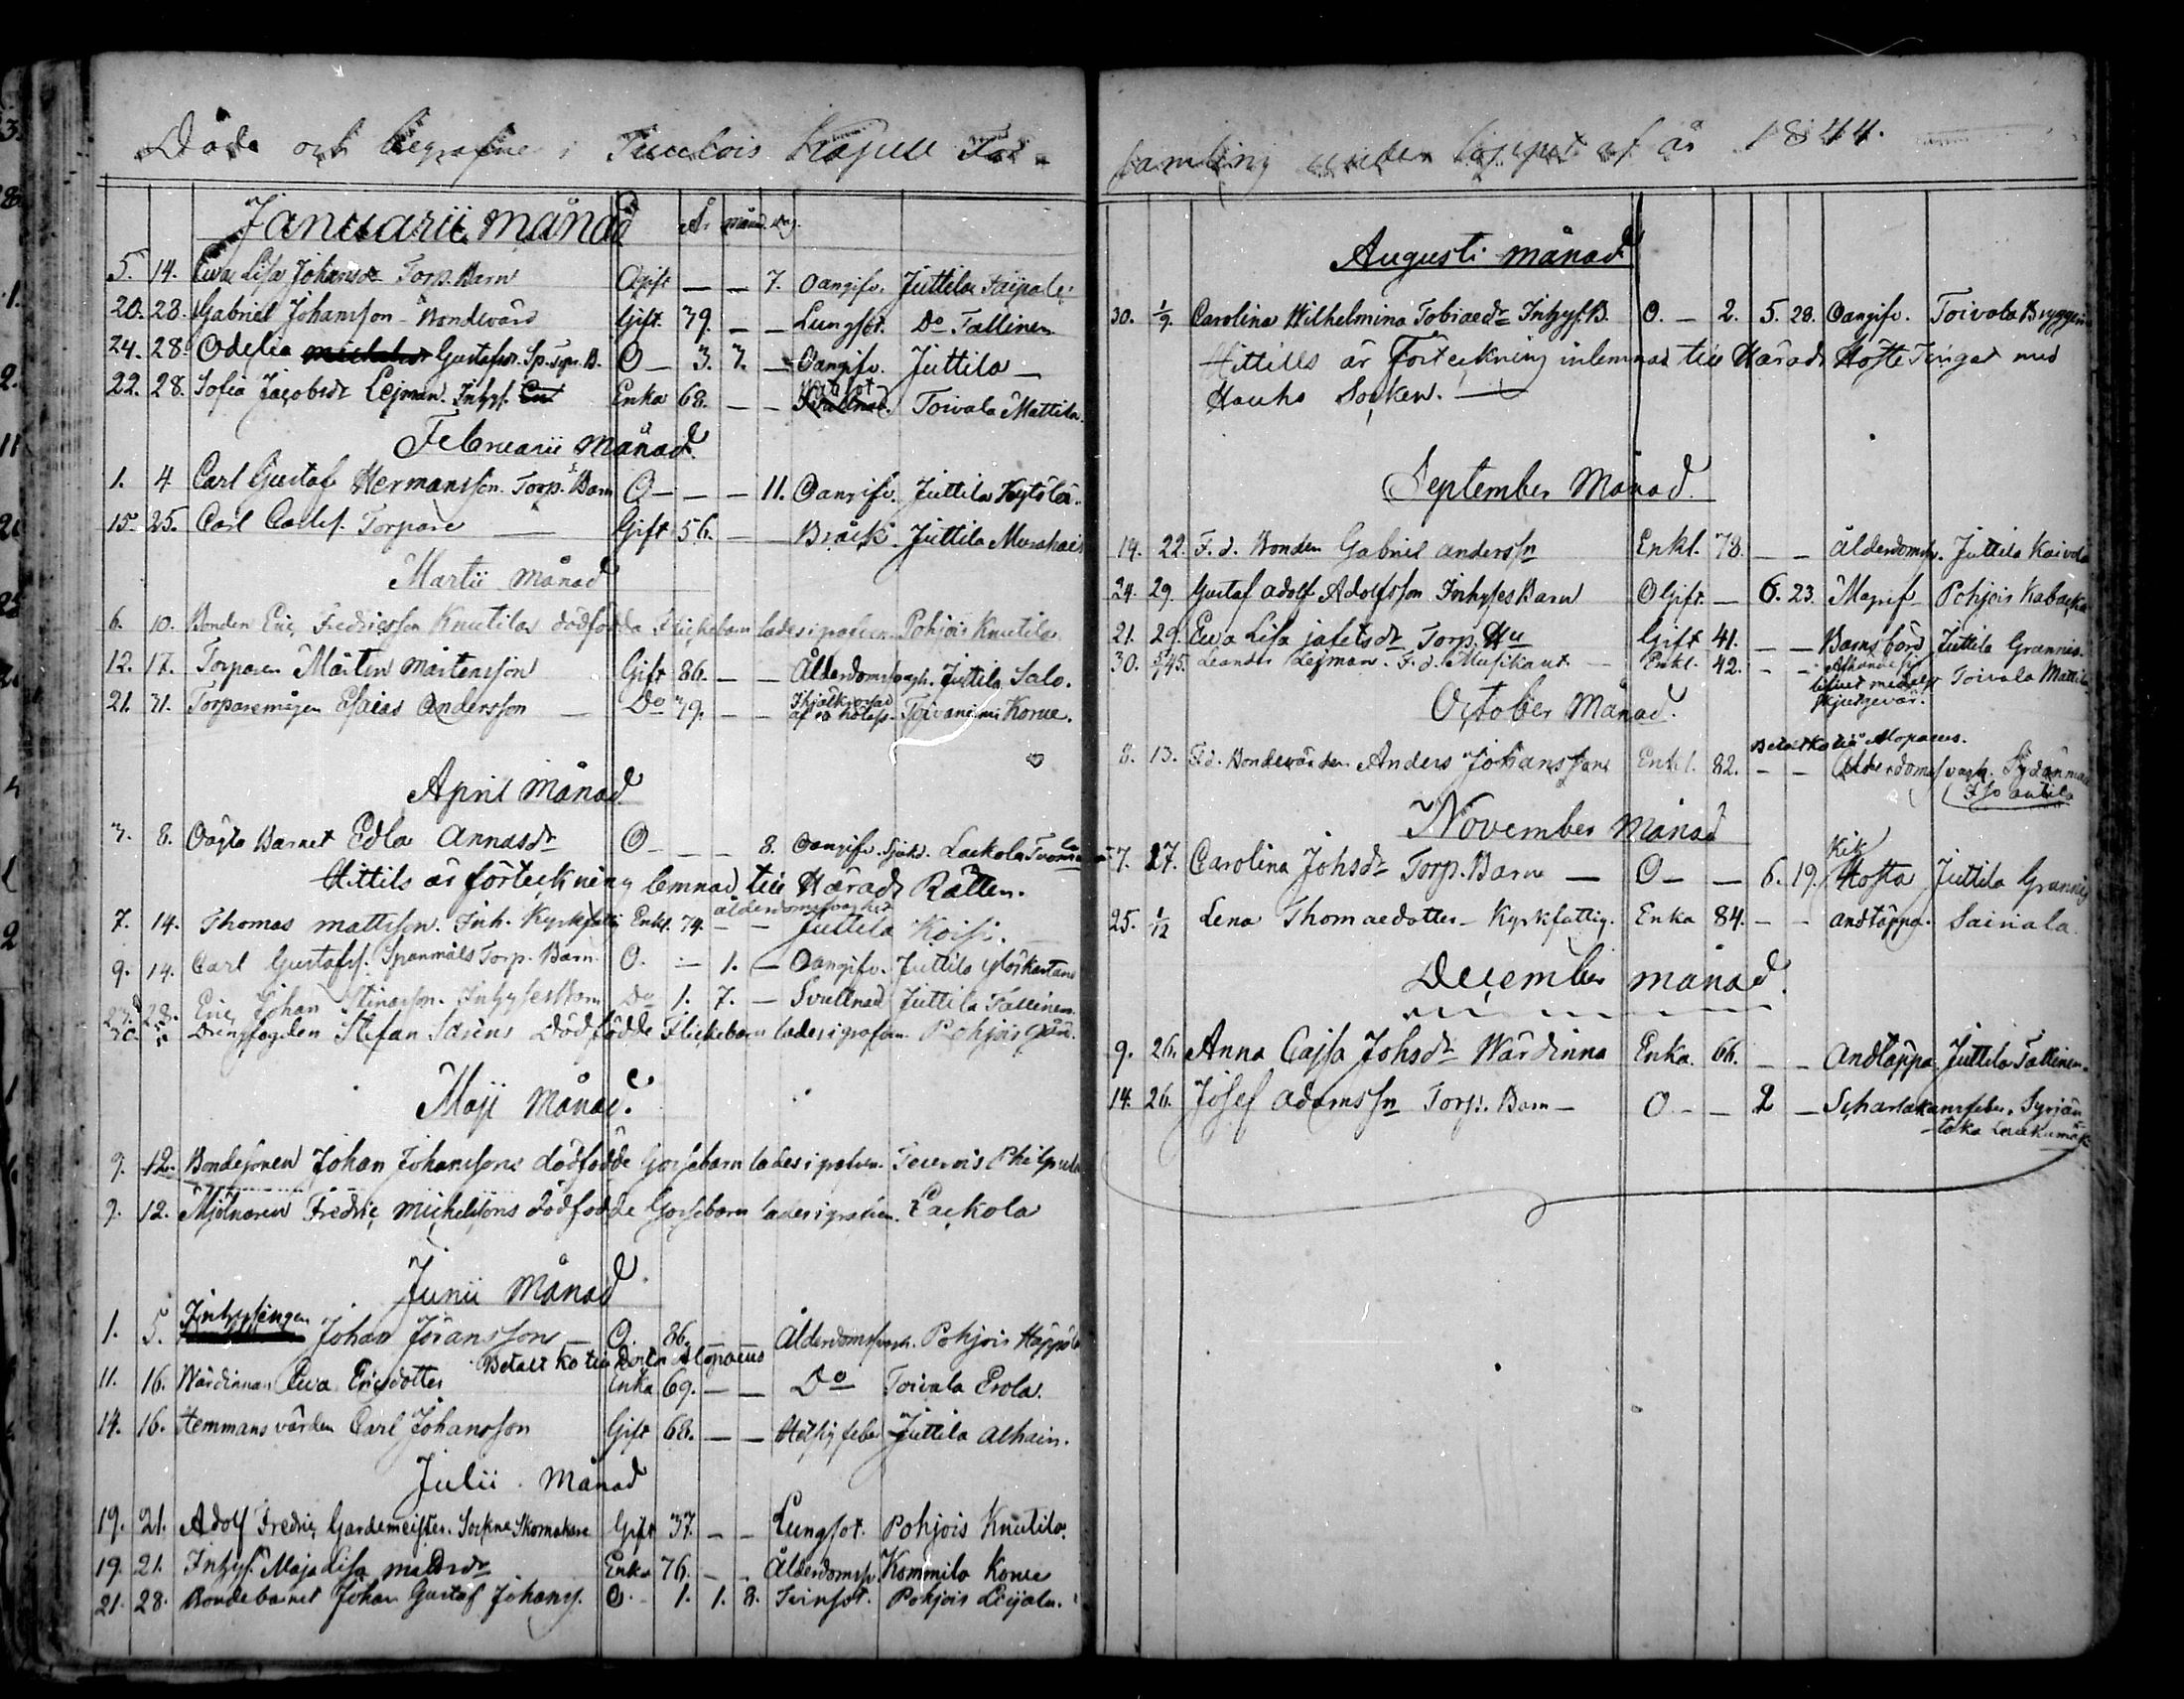 Döde och begrafne i Tuulois Kapell För-
Januarii månad År. månad. Dag.
5. 14. Ewa Lisa Johansdr Torp. Barn Ogift — — 7. Oangifv. Juttila Taipale
20. 28. Gabriel Johansson Bondevärd Gift. 39. — — Lungsot. Do Tallinen
24. 28. Odelia Gustafsdr. Sp. Torp. B. O — 3. 7. — Oangifv. Juttila —
22. 28. Sofia Jacobsdr Lejman. Inhys. Enka 68. — — Toivala Mattila.
Februarii månad.
1. 4 Carl Gustaf Hermansson. Torp. Barn O — — — 11. Oangifv. Juttila Kytölä.
15. 25. Carl Carlss. Torpare — Gift 56. — — Bråck. Juttila
Martii månad
6. 10. Bonden Eric Fredricsson Knutilas dödfödda Flickebarn lades i grafven. Pohjois Knutila
12. 17. Torparen Mårten Mårtensson Gift 86. — — Ålderdomsvagh. Juttila Salo.
21. 31. Torparemågen Esaias Andersson — Do 39. — — Ihjälkrossad af Toivaniemi Korue.
April månad
3. 8. Oägta Barnet Edla Annasdr O — — — 8. Oangifv. Sjukd. Lackola
Hittils är förteckning lemnad till Härads Rätten.
ålderdomsvaghet
7. 14. Thomas Mattsson. Inh. Kyrkfattig Enkl. 74. — — Juttila Koisi.
9. 14. Carl Gustafss. Spanmåls Torp. Barn. O. — 1. — Oangifv. Juttila Ylöskartano
23. 28. Eric Johan Stinasson. Inhyses Barn Do 1. 7. — Svullnad Juttila Tallinen.
30. Drängfogden Stefan Sarens Dödfödde Flickebarn lades i grafven. Pohjois
Maji månad.
9. 12. Bondesonen Johan Johanssons dödfödde Gossebarn lades i grafven. Teuvois Philpula
9. 12. Mjölnaren Fredric Michelssons dödfödde Gossebarn lades i grafven. Lackola
Junii månad
1. 5. Inhysingen Johan Joransson — O. 86. — — Ålderdomsvagh. Pohjois Heppola
Betalt ko till Doctor Alopaeus
11. 16. Wärdinnan Ewa Ericsdotter Enka 69. — — Do Toivala Erola.
14. 16. Hemmansvärden Carl Johansson Gift 68. — — Hetsig feber Juttila Alhain.
Julii månad
19. 21. Adolf Fredric Gardemeister. Sockne Skomakare Gift 37. — — Lungsot. Pohjois Knutila.
19. 21. Inhys. Maja Lisa Matsdr Enka 76. — — Ålderdomsv. Kommila Korue
21. 28. Bondebarnet Johan Gustaf Johanss. O. 1. 1. 8. Tvinsot. Pohjois Leijala.
samling under loppet af år 1844.
Augusti månad
30. 1/9. Carolina Wilhelmina Tobiaedr Inhys. B. O. — 2. 5. 28. Oangifv. Toivala Bryggeri
Hittills är Förteckning inlemnad till Härads Höste Tinget med
Hauho Socken. —
September Månad.
19. 22. F. d. Bonden Gabriel Anderssn Enkl. 78. — — Ålderdomsv. Juttila Kaivola
24. 29. Gustaf Adolf Adolfsson Inhyses Barn Ogift. — 6. 23. Magref Pohjois Kabacka
21. 29. Ewa Lisa Jafetsdr Torp. Hu Gift 41. — — Barnsbörd Juttila Grannis.
30. Leander Lejman. F. d. Musikant. — Enkl. 42. — — Afhände sig lifvet medelst skjutgevär. Toivala Mattila
October Månad.
Betalt ko till Alopaeus.
8. 13. F. d. Bondevärden Anders Johansson Enkl. 82. — — Ålderdomsvagh. Sydänmaa Iso antila
November månad
7. 17. Carolina Johsdr Torp. Barn — O — — 6. 19. Kik Hosta Juttila Grannis
25. 1/12 Lena Thomaedotter — Kyrkfattig. Enka 84. — — Andtäppa. Sairiala.
December månad.
9. 26. Anna Cajsa Johsdr Wärdinna Enka. 66. — — Andtäppa. Juttila Tallinen.
14. 26. Josef Adamssn Torp. Barn — O — — 2 — Scharlakansfeber. Syrjän-
taka Laukumäki